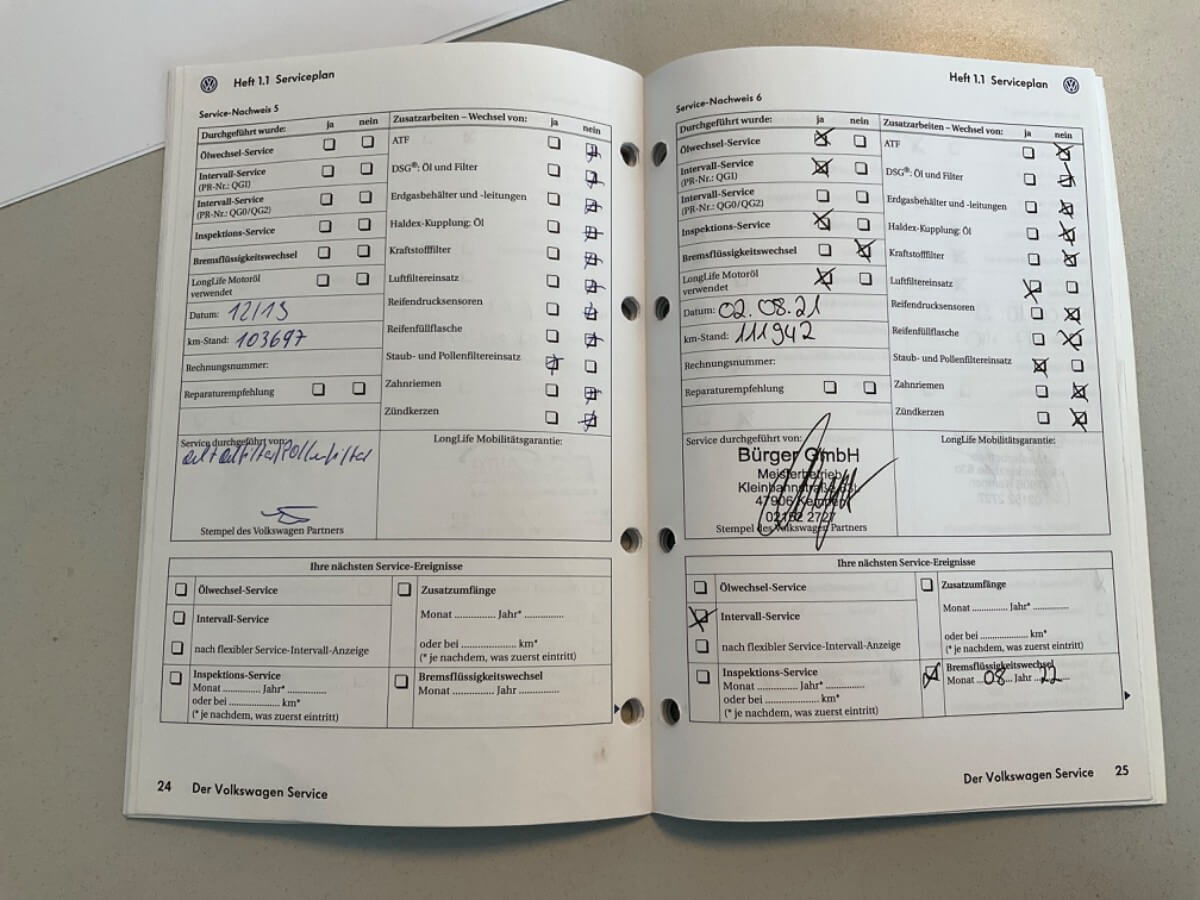 Heft 1.1 Serviceplan
Service-Nachweis 5
Durchgeführt wurde: ja nein
Ölwechsel-Service
Intervall-Service
(PR-Nr.: QG1)
Intervall-Service
(PR-Nr.: QG0/QG2)
Inspektions-Service
Bremsflüssigkeitswechsel
LongLife Motoröl
verwendet
Datum: 12/13
km-Stand: 103697
Rechnungsnummer:
Reparaturempfehlung
Zusatzarbeiten – Wechsel von: ja nein
ATF
DSG®: Öl und Filter
Erdgasbehälter und -leitungen
Haldex-Kupplung: Öl
Kraftstofffilter
Luftfiltereinsatz
Reifendrucksensoren
Reifenfüllflasche
Staub- und Pollenfiltereinsatz
Zahnriemen
Zündkerzen
Service durchgeführt von:
Stempel des Volkswagen Partners
LongLife Mobilitätsgarantie:
Ihre nächsten Service-Ereignisse
Ölwechsel-Service
Intervall-Service
nach flexibler Service-Intervall-Anzeige
Inspektions-Service
Monat ............. Jahr* ..............
oder bei ..................... km*
(* je nachdem, was zuerst eintritt)
Zusatzumfänge
Monat ............. Jahr* ..............
oder bei ..................... km*
(* je nachdem, was zuerst eintritt)
Bremsflüssigkeitswechsel
Monat .............. Jahr ..............
24 Der Volkswagen Service
Heft 1.1 Serviceplan
Service-Nachweis 6
Durchgeführt wurde: ja nein
Ölwechsel-Service
Intervall-Service
(PR-Nr.: QG1)
Intervall-Service
(PR-Nr.: QG0/QG2)
Inspektions-Service
Bremsflüssigkeitswechsel
LongLife Motoröl
verwendet
Datum: 02.08.21
km-Stand: 111942
Rechnungsnummer:
Reparaturempfehlung
Zusatzarbeiten – Wechsel von: ja nein
ATF
DSG®: Öl und Filter
Erdgasbehälter und -leitungen
Haldex-Kupplung: Öl
Kraftstofffilter
Luftfiltereinsatz
Reifendrucksensoren
Reifenfüllflasche
Staub- und Pollenfiltereinsatz
Zahnriemen
Zündkerzen
Service durchgeführt von:
Bürger GmbH
Meisterbetrieb
Kleinbahnstraße
47906 Kempen
02152 2727
Stempel des Volkswagen Partners
LongLife Mobilitätsgarantie:
Ihre nächsten Service-Ereignisse
Ölwechsel-Service
Intervall-Service
nach flexibler Service-Intervall-Anzeige
Inspektions-Service
Monat ............. Jahr* ..............
oder bei ..................... km*
(* je nachdem, was zuerst eintritt)
Zusatzumfänge
Monat ............. Jahr* ..............
oder bei ..................... km*
(* je nachdem, was zuerst eintritt)
Bremsflüssigkeitswechsel
Monat 08 Jahr 22
Der Volkswagen Service 25